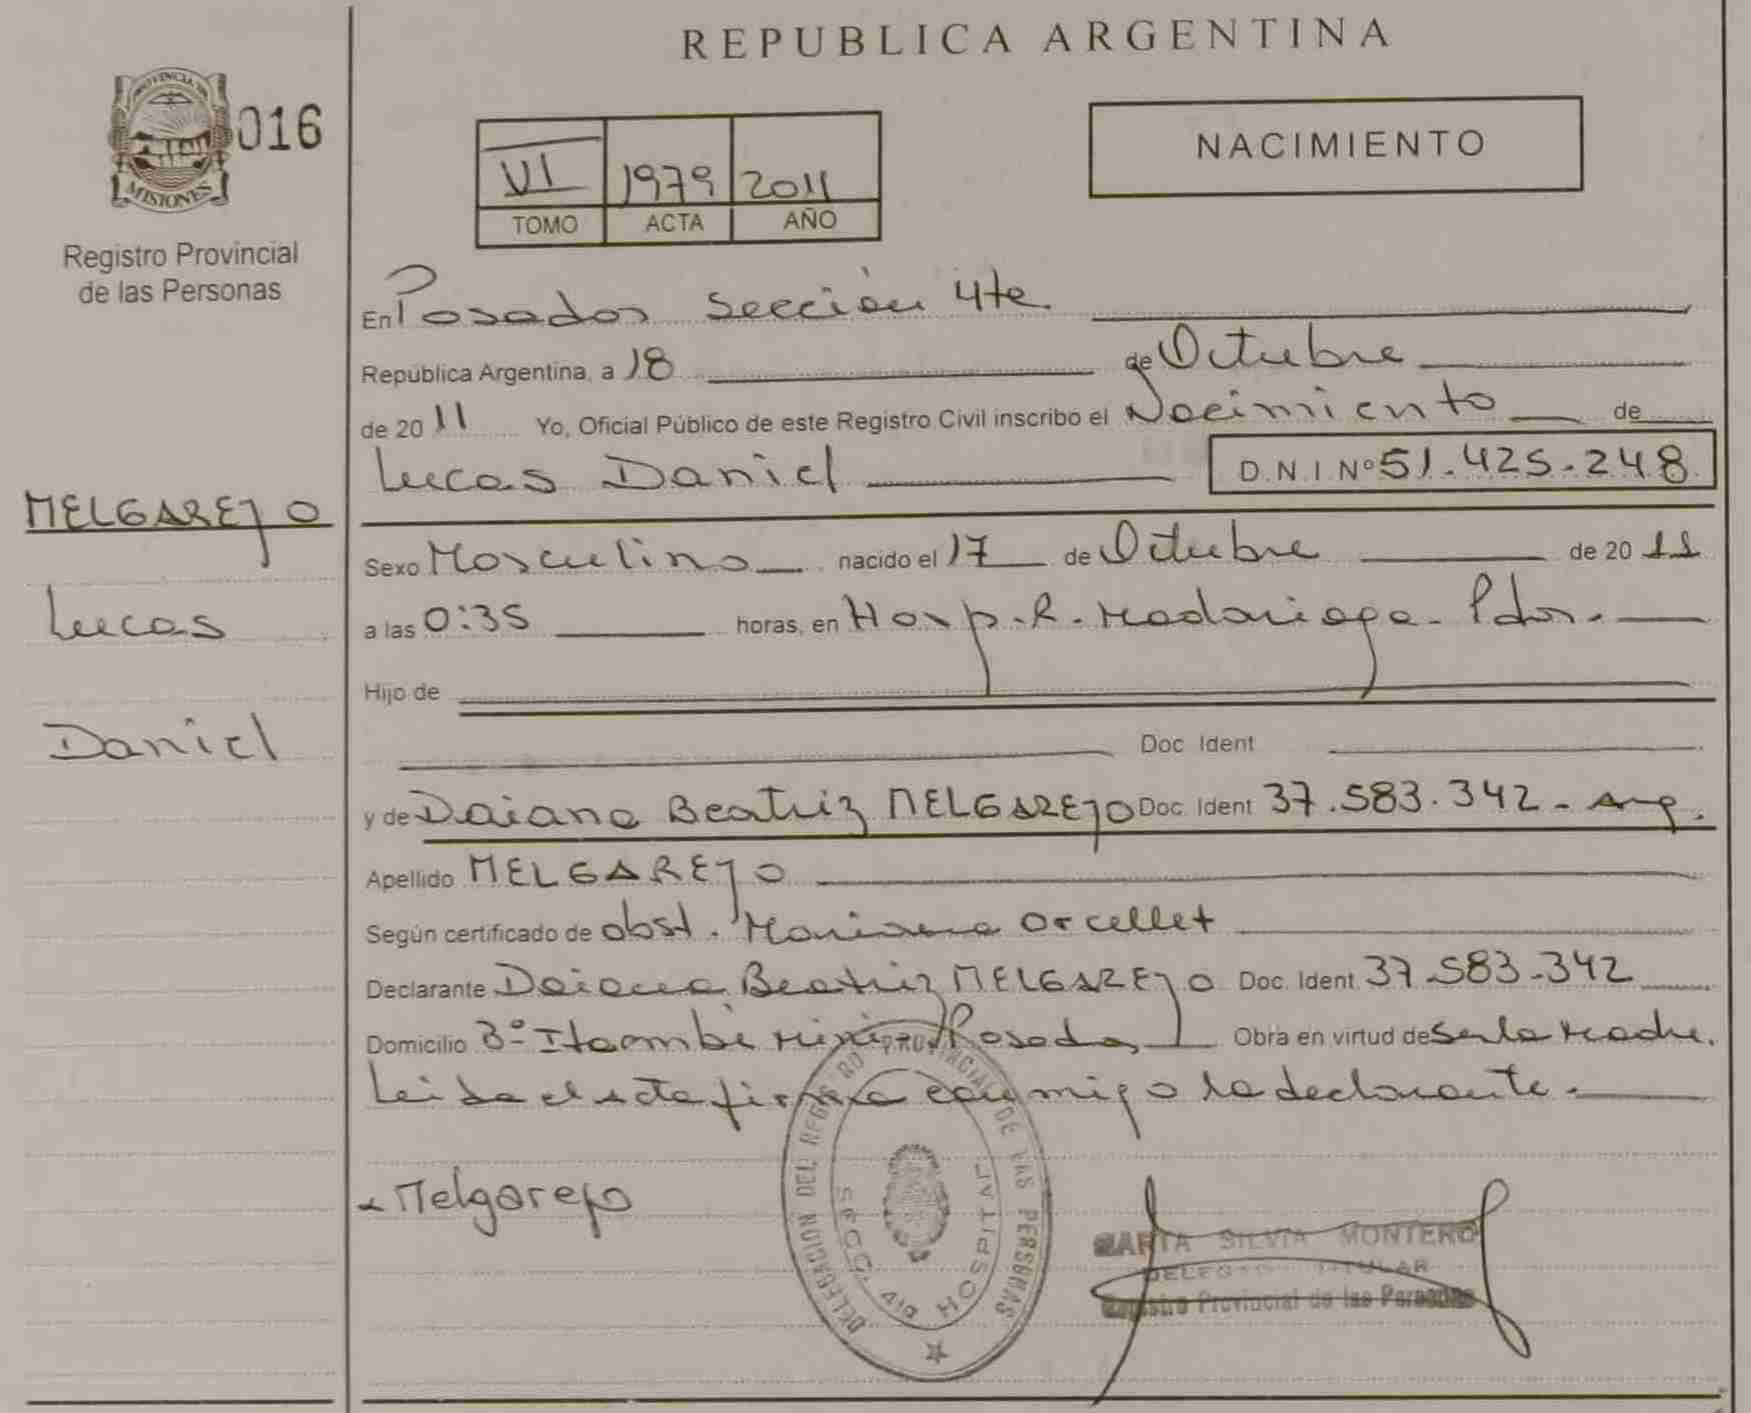 REPUBLICA ARGENTINA
PROVINCIA DE
MISIONES
016
Registro Provincial
de las Personas
VI 1979 2011
TOMO ACTA AÑO
NACIMIENTO
En Posadas Sección 4ta.
República Argentina, a 18 de Octubre
de 2011 Yo, Oficial Público de este Registro Civil inscribo el Nacimiento de
Lucas Daniel D.N.I. Nº 51.425.248
MELGAREJO
Lucas
Daniel
Sexo Masculino nacido el 17 de Octubre de 2011
a las 0:35 horas, en Hosp. R. Madariaga - Pdas.
Hijo de
Doc. Ident
y de Daiana Beatriz MELGAREJO Doc. Ident 37.583.342 - Arg.
Apellido MELGAREJO
Según certificado de obst. Mariana Orcellet
Declarante Daiana Beatriz MELGAREJO Doc. Ident 37.583.342
Domicilio Bº Itaembé Miní - Posadas Obra en virtud de ser la madre.
Leida el acta firma conmigo la declarante.
Melgarejo
DELEGACION DEL REGISTRO PROVINCIAL DE LAS PERSONAS
SECC. 4ta HOSPITAL
MARTA SILVIA MONTERO
DELEGADO TITULAR
Registro Provincial de las Personas